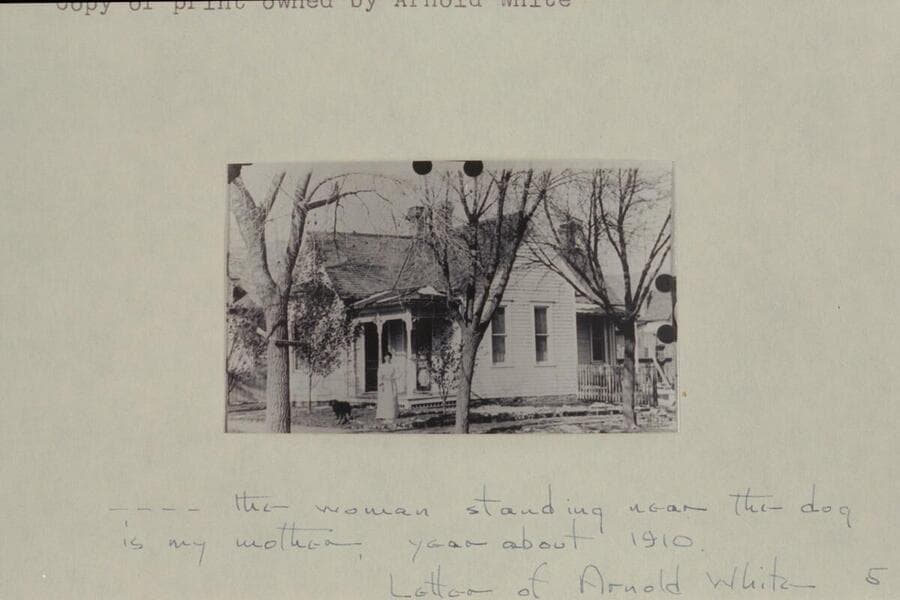 copy of print owned by Arnold White
---- the woman standing near the dog
is my mother, year about 1910.
Letter of Arnold White 5